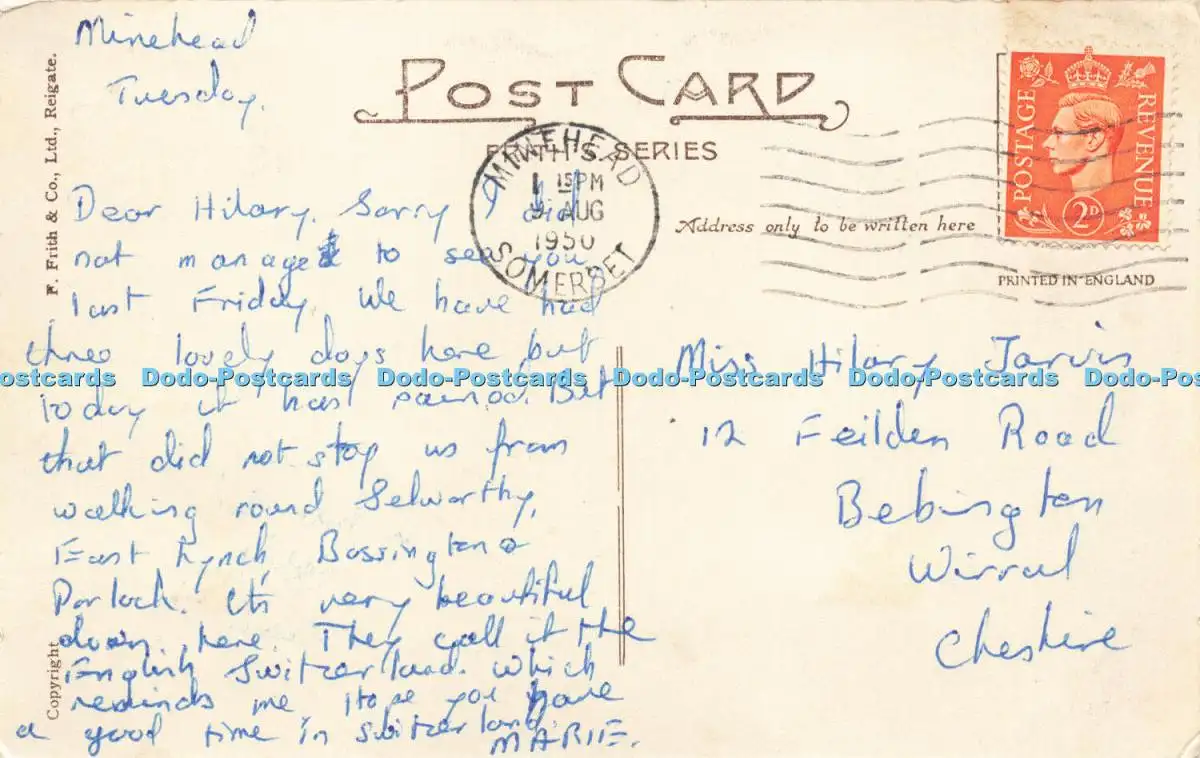 Minehead
Tuesday.
POST CARD
FRITH'S SERIES
MINEHEAD
15 PM
9 AUG
1950
SOMERSET
POSTAGE
REVENUE
2D
Address only to be written here
PRINTED IN ENGLAND
F. Frith & Co., Ltd., Reigate.
Copyright
Dear Hilary. Sorry I did
not manage to see you
last Friday. We have had
three lovely days here but
today it has poured. But
that did not stop us from
walking round Selworthy,
East Lynch, Bossington &
Porlock. Its very beautiful
down here. They call it the
English Switzerland. which
reminds me, Hope you have
a good time in Switzerland
MARIE.
Miss Hilary Jarvis
12 Feilden Road
Bebington
Wirral
Cheshire
Dodo-Postcards Dodo-Postcards Dodo-Postcards Dodo-Postcards